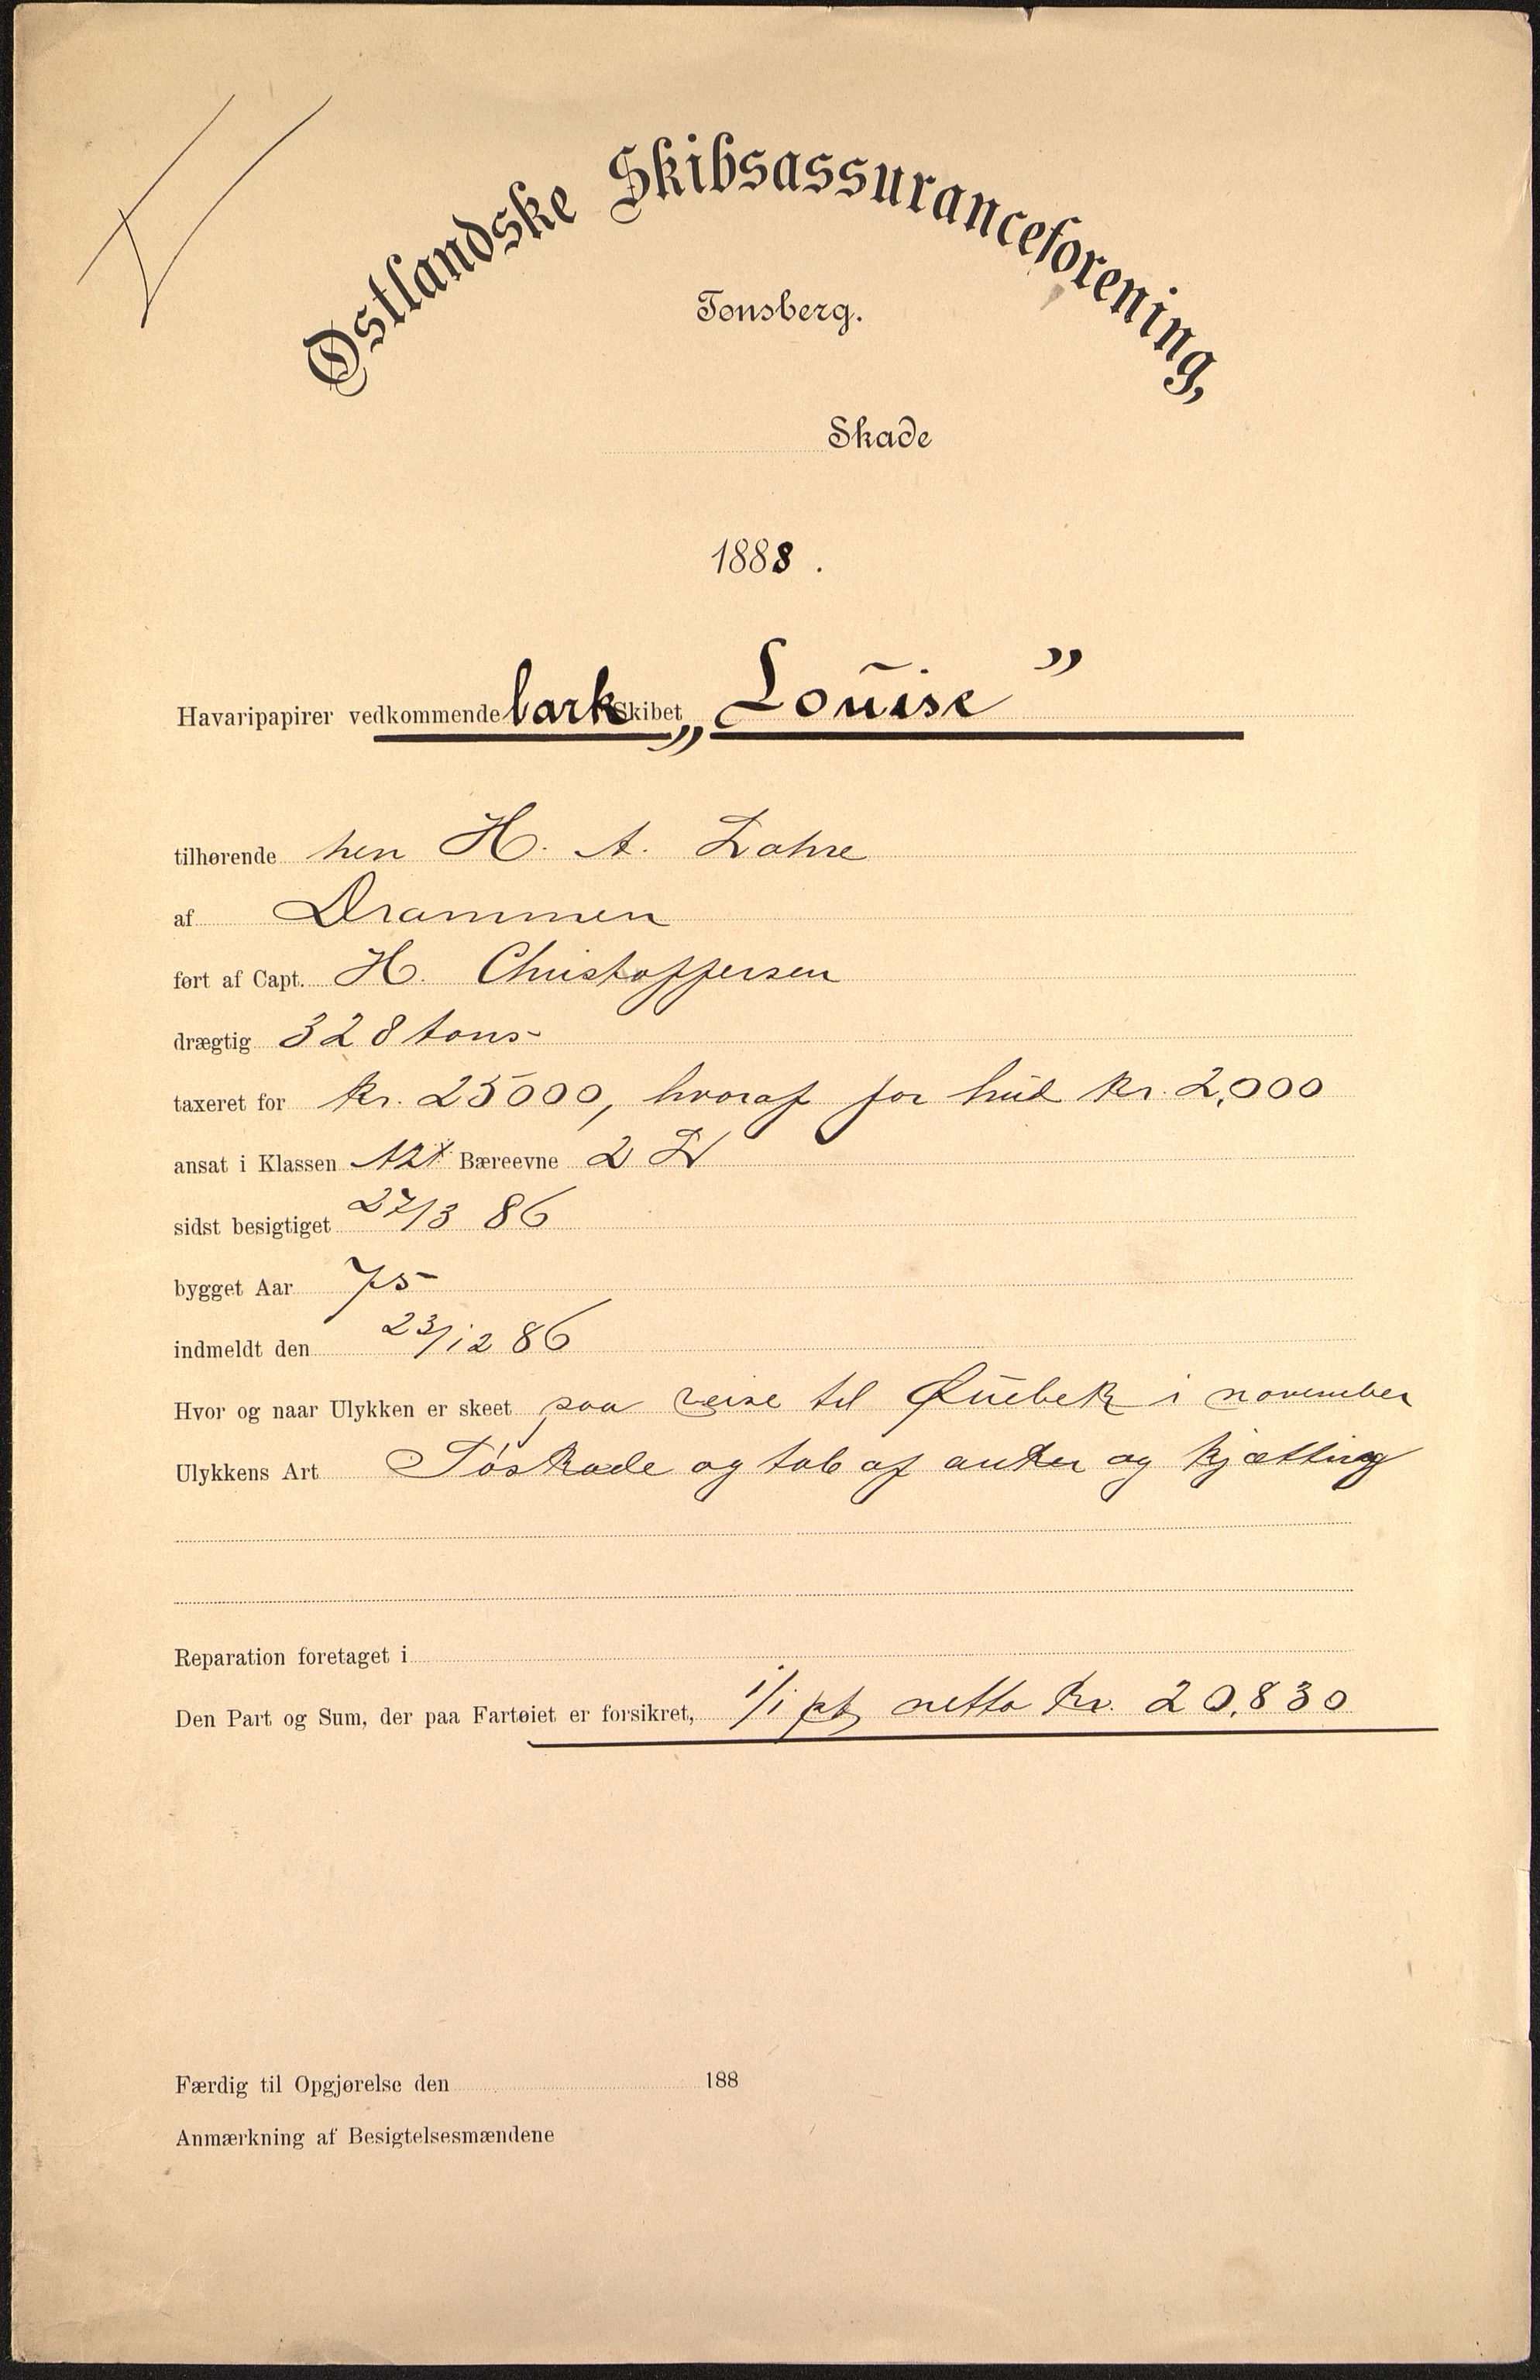 Østlandske Skibsassuranceforening,
Tønsberg.
Skade
1888.
Havaripapirer vedkommende bark Skibet „Louise”
tilhørende herr H. A.
af Drammen
ført af Capt. H. Christoffersen
drægtig 328 tons
taxeret for Kr. 25000, hvoraf for hud Kr. 2,000
ansat i Klassen Bæreevne 2
sidst besigtiget 27/3 86
bygget Aar 75
indmeldt den 23/12 86
Hvor og naar Ulykken er skeet paa reise til Quebek i november
Ulykkens Art Søskade og tab af anker og kjætting
Reparation foretaget i
Den Part og Sum, der paa Fartøiet er forsikret, 1/1 pt netto Kr. 20,830
Færdig til Opgjørelse den 188
Anmærkning af Besigtelsesmændene